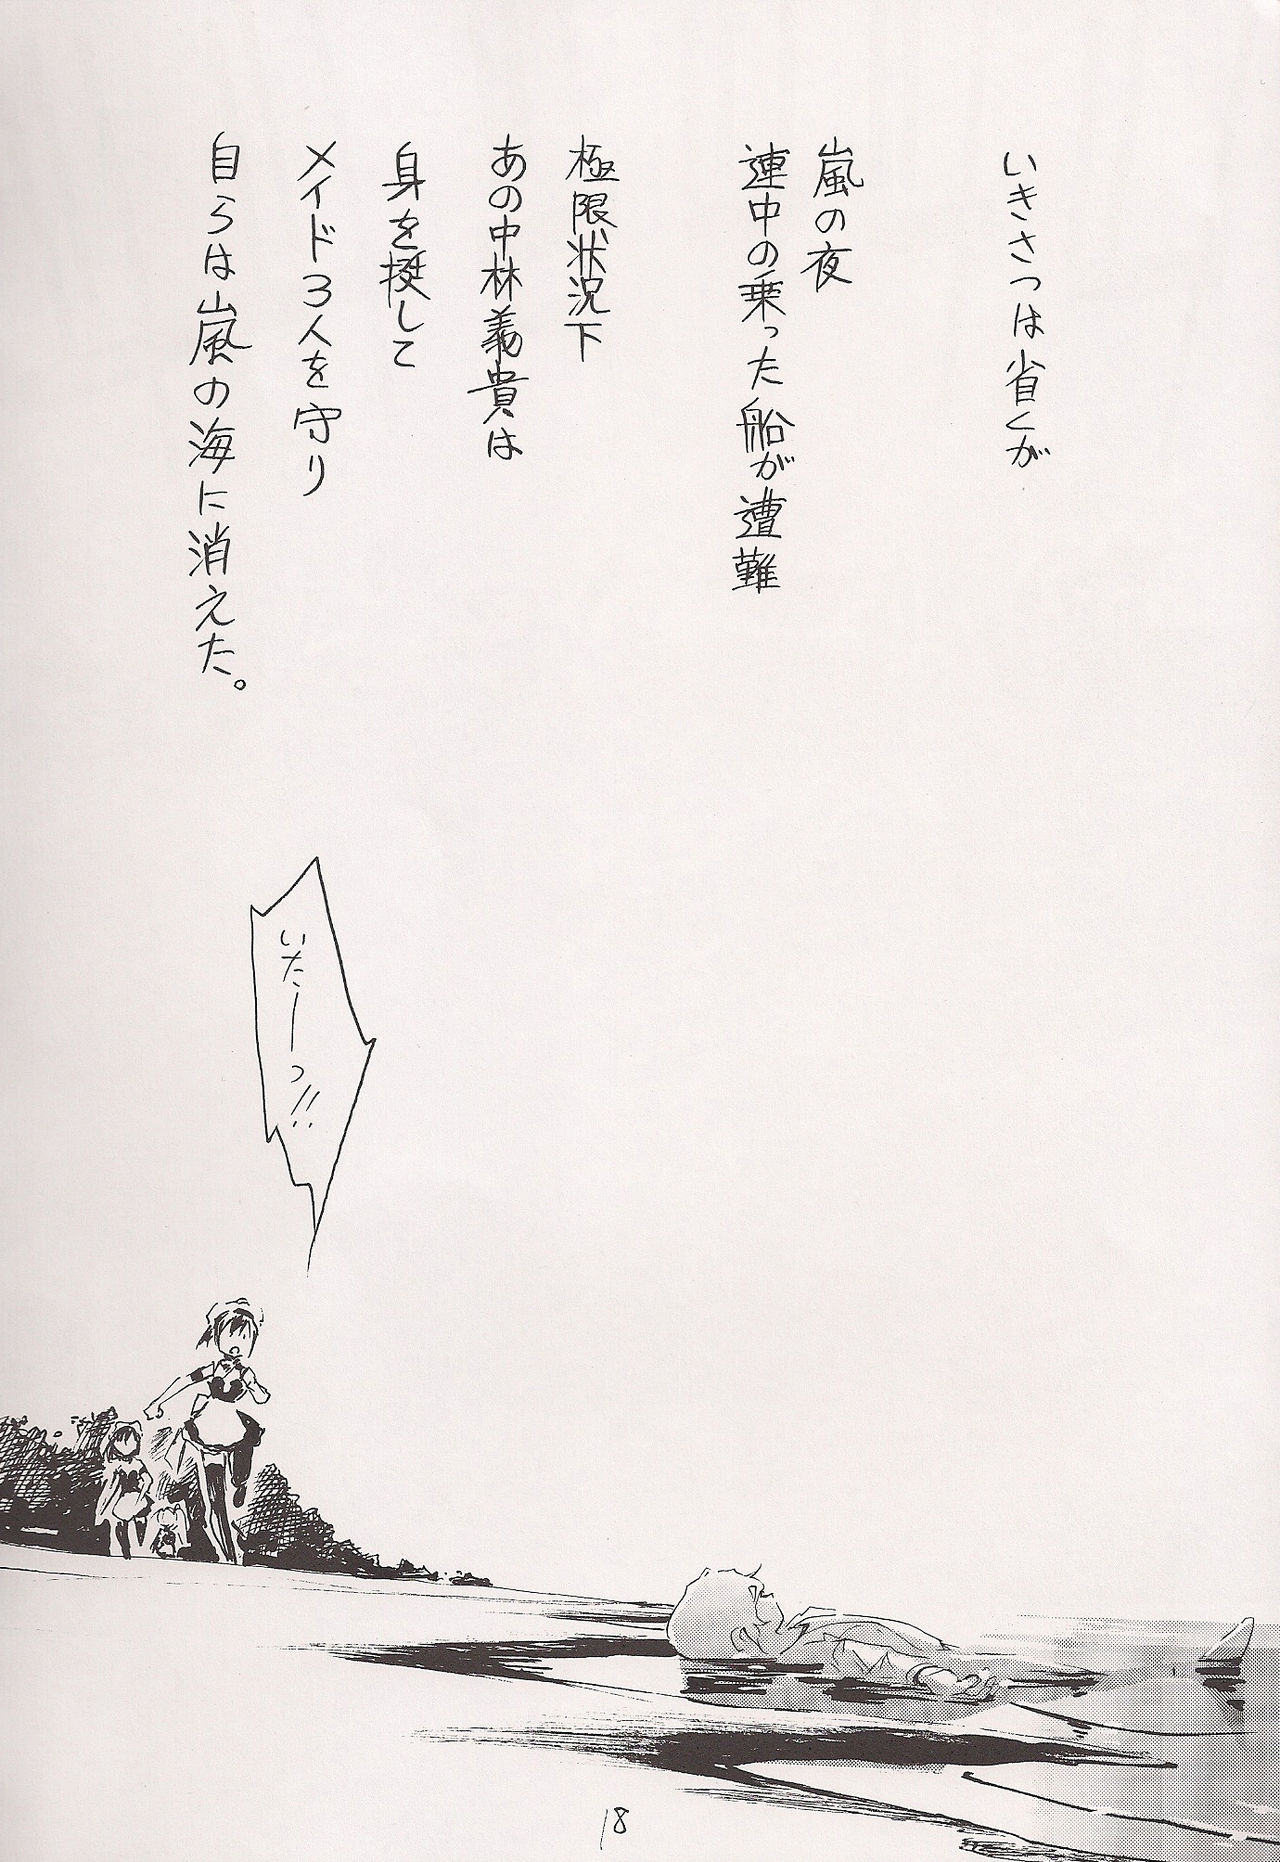 いきさつは省くが
嵐の夜
連中の乗った船が遭難
極限状況下
あの中林義貴は
身を挺して
メイド3人を守り
自らは嵐の海に消えた。
いたーっ!!
18